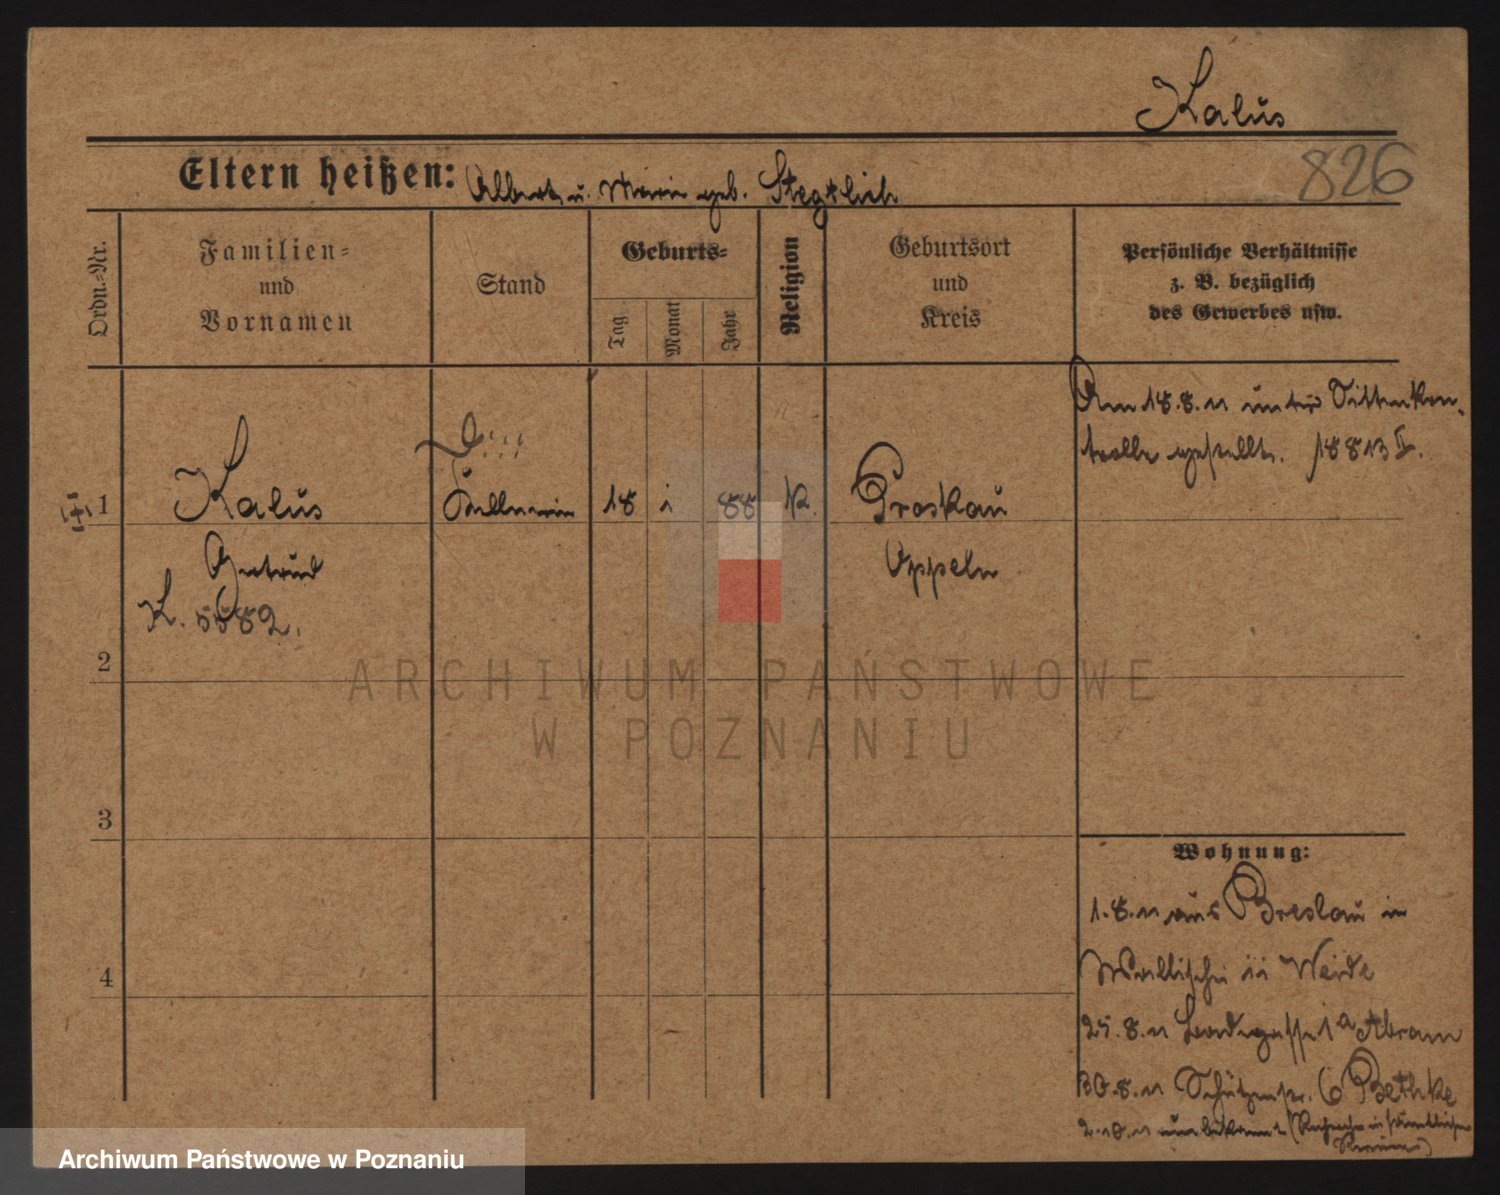 Kalus
826
Eltern heißen: Albert u. Marie geb.
Ordn.=Nr.
Familien=
und
Vornamen
Stand
Geburts=
Tag
Monat
Jahr
Religion
Geburtsort
und
Kreis
Persönliche Verhältnisse
z. B. bezüglich
des Gewerbes usw.
Am 18.8.11 unter Sittenkon-
trolle gestellt.
1 Kalus Kellnerin 18 1 88 k. Proskau
Gertrud Oppeln
K. 5582.
2
3
4
Wohnung:
1.8.11 aus Breslau in
Wallischei 11 Weide
25.8.11 Badegasse 1a Abram
30.8.11 Schützenstr. 6 Bethke
2.10.11 unbekannt
ARCHIWUM PAŃSTWOWE
W POZNANIU
Archiwum Państwowe w Poznaniu